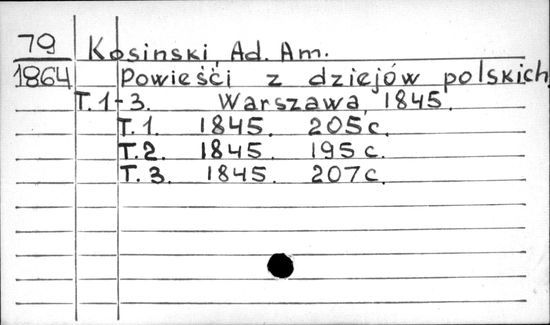 79 Kosinski, Ad. Am.
1864 Powieśći z dziejów polskich,
T. 1-3. Warszawa, 1845.
T. 1. 1845. 205 c.
T. 2. 1845. 195 c.
T. 3. 1845. 207 c.